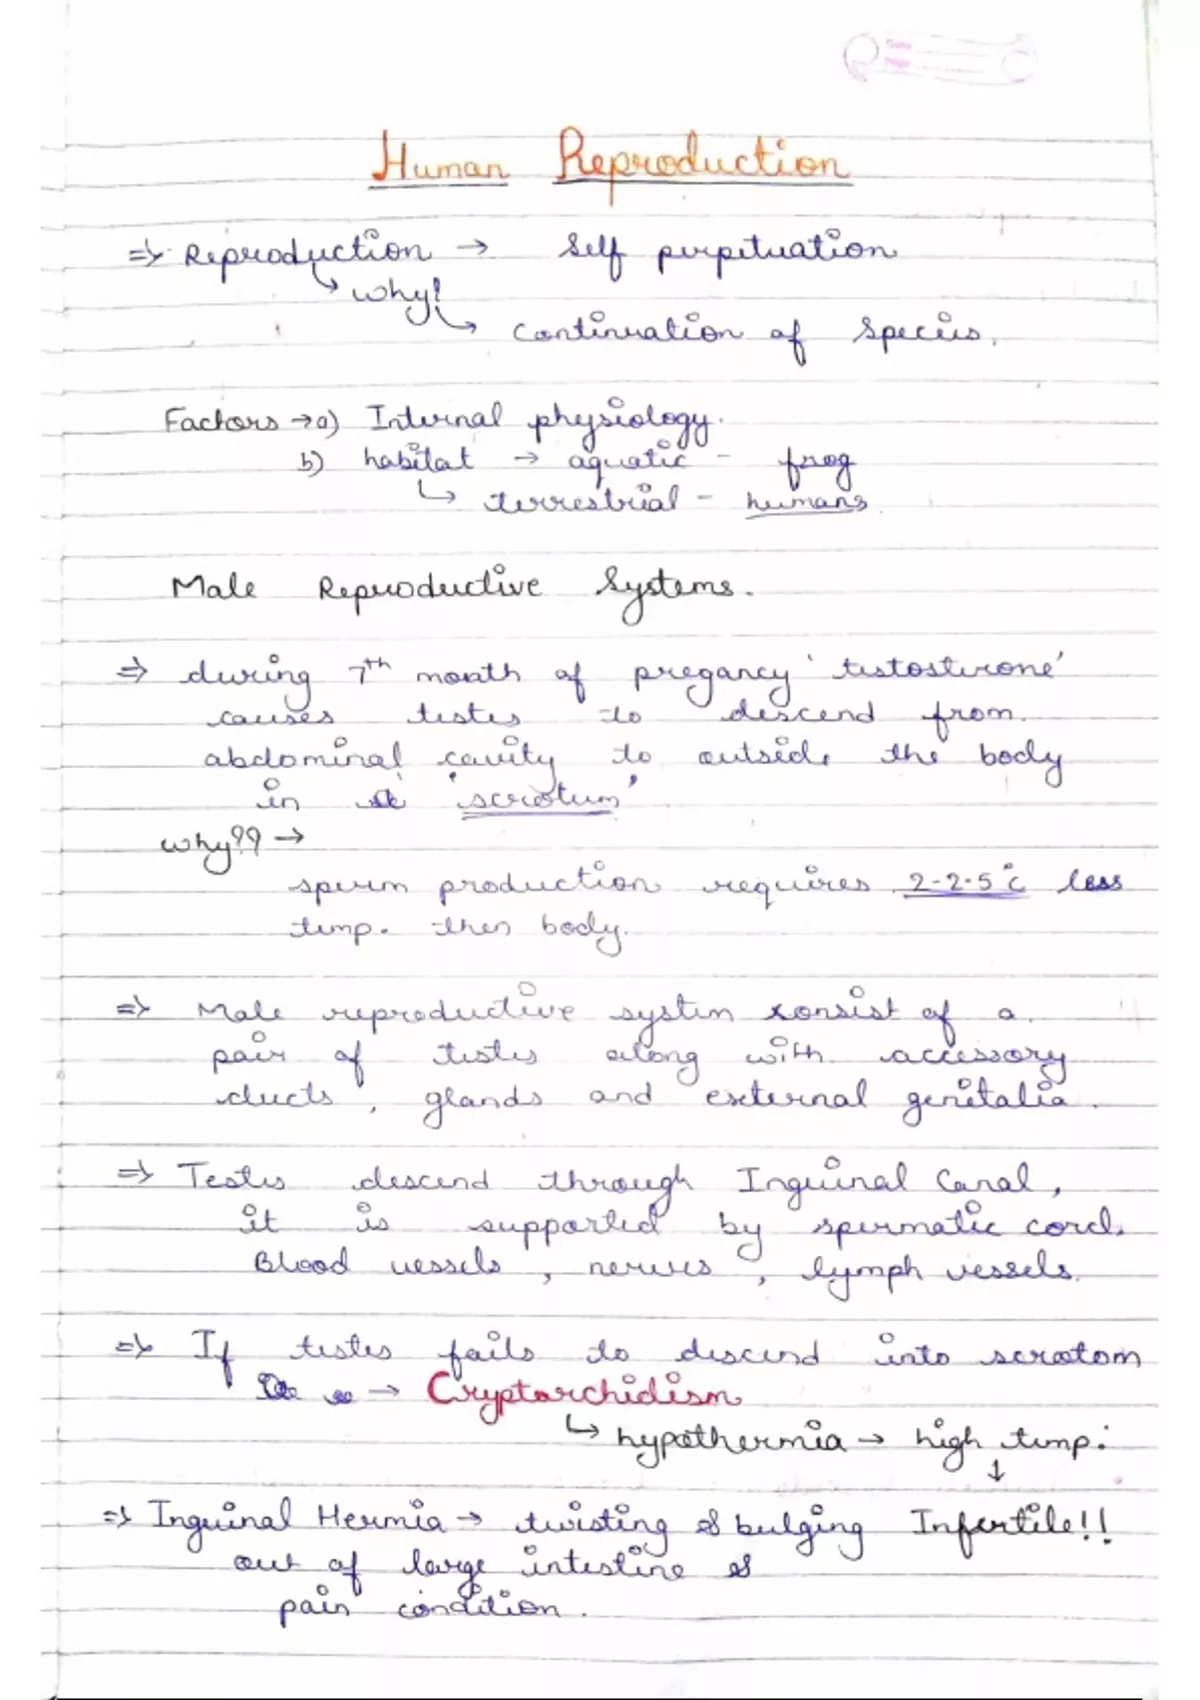 Date
Page
Human Reproduction
=> Reproduction → Self perpetuation
↳ why?
↳ continuation of species.
Factors → a) Internal physiology.
b) habitat → aquatic - frog
↳ terrestrial - humans
Male Reproductive Systems.
=> during 7th month of pregancy 'testosterone'
causes testes to descend from
abdominal cavity to outside the body
in 'scrotum'
why?? →
sperm production requires 2-2.5°c less
temp. then body.
=> Male reproductive system consist of a
pair of testes along with accessory
ducts, glands and external genitalia.
=> Testes descend through Inguinal Canal,
it is supported by spermatic cord.
Blood vessels, nerves, lymph vessels.
=> If testes fails to descend into scrotom
→ Cryptorchidism
↳ hypothermia → high temp.
↓
=> Inguinal Hermia → twisting & bulging Infertile!!
out of large intestine &
pain condition.